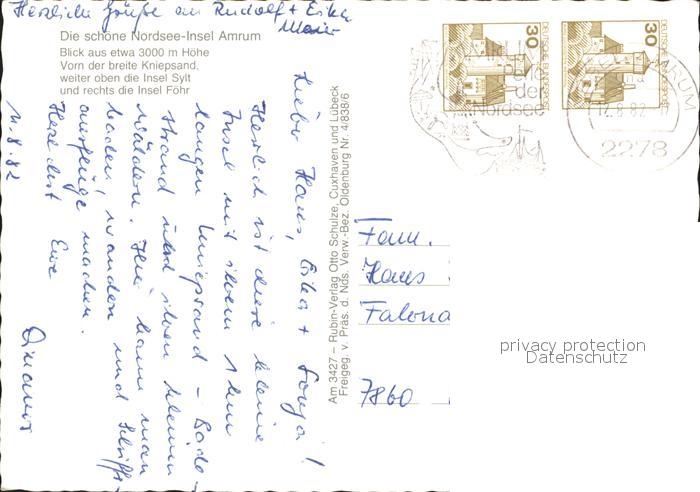 Herzliche Grüße an Rudolf + Erika
Maier
Die schöne Nordsee-Insel Amrum
Blick aus etwa 3000 m Höhe
Vorn der breite Kniepsand,
weiter oben die Insel Sylt
und rechts die Insel Föhr
11.8.82
Liebe Hans, Erika + Sonja!
Herrlich ist diese kleine
Insel mit ihrem 1 km
langen Kniepsand - Bade-
strand und ihren kleinen
Wäldern. Hier kann man
baden, wandern und Schiffs-
ausflüge machen.
Herzlichst Eure
Am 3427 – Rubin-Verlag Otto Schulze, Cuxhaven und Lübeck
Freigeg. v. Präs. d. Nds. Verw.-Bez. Oldenburg Nr. 4/838/6
30
DEUTSCHE BUNDESPOST
30
DEUTSCHE BUNDESPOST
der
Nordsee
AMRUM
12.8.82
2278
Fam.
Hans
7860
privacy protection
Datenschutz